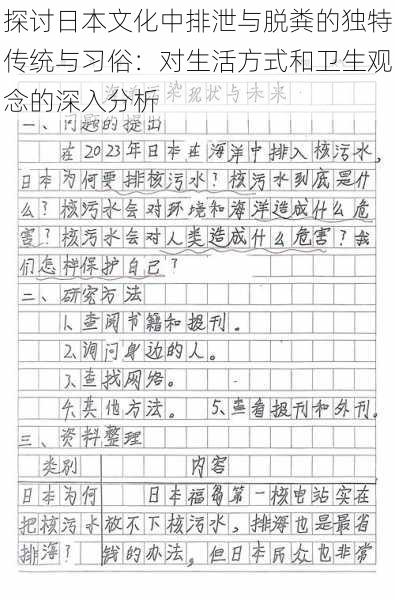 探讨日本文化中排泄与脱粪的独特
传统与习俗：对生活方式和卫生观
念的深入分析
染现状与未来
一、问题的提出
在2023年日本在海洋中排入核污水,
日本为何要排核污水？核污水到底是什
么？核污水会对环境和海洋造成什么危
害？核污水会对人类造成什么危害？我
们怎样保护自己？
二、研究方法
1.查阅书籍和报刊。
2.询问身边的人。
3.查找网络。
4.其他方法。 5、查看报刊和外刊。
三、资料整理
类别 内容
日本为何 日本福岛第一核电站实在
把核污水 放不下核污水，排海也是最省
排海？ 钱的办法，但日本民众也非常